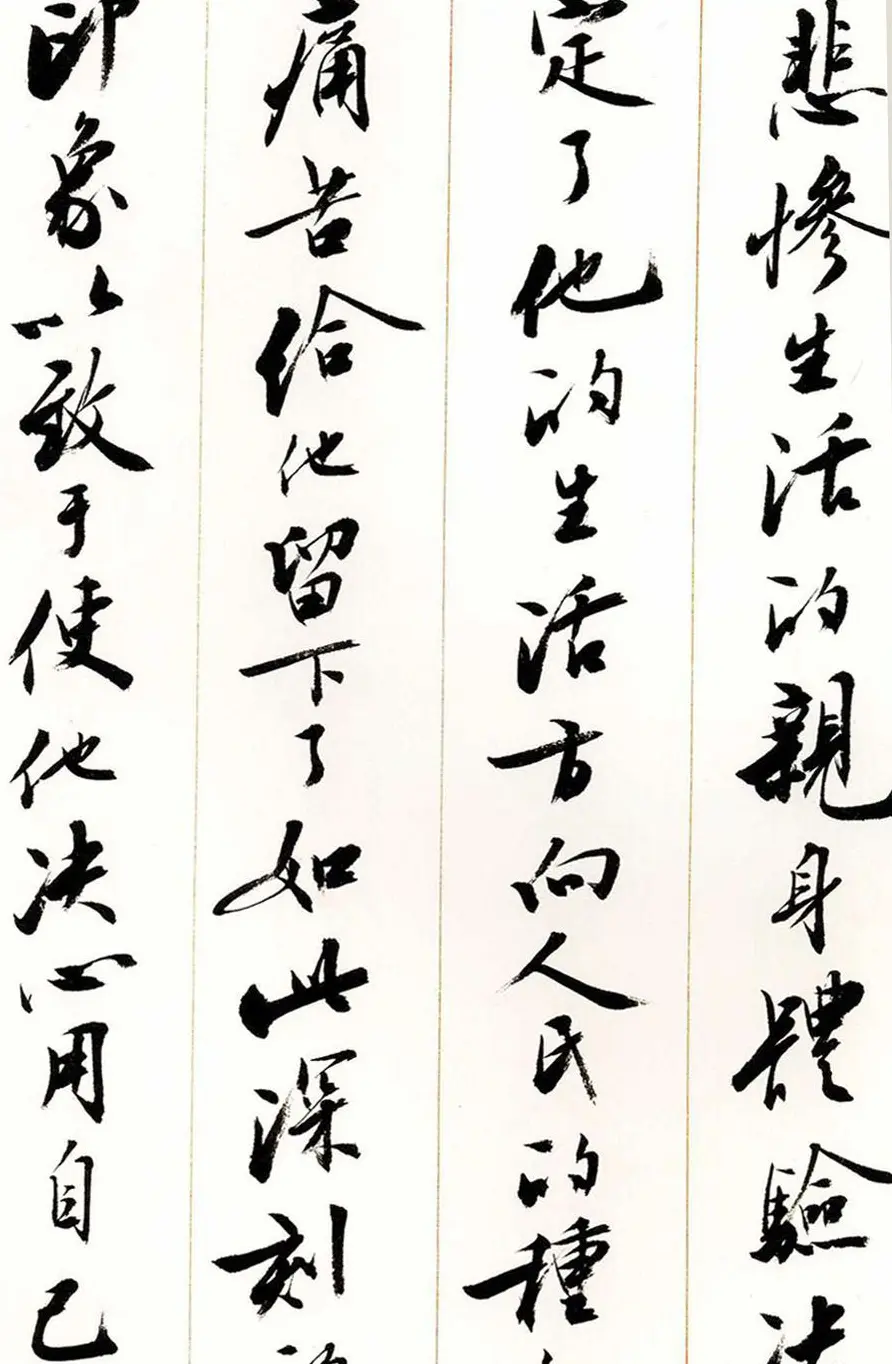 悲慘生活的親身體驗决
定了他的生活方向人民的種
痛苦给他留下了如此深刻
印象以致于使他决心用自己